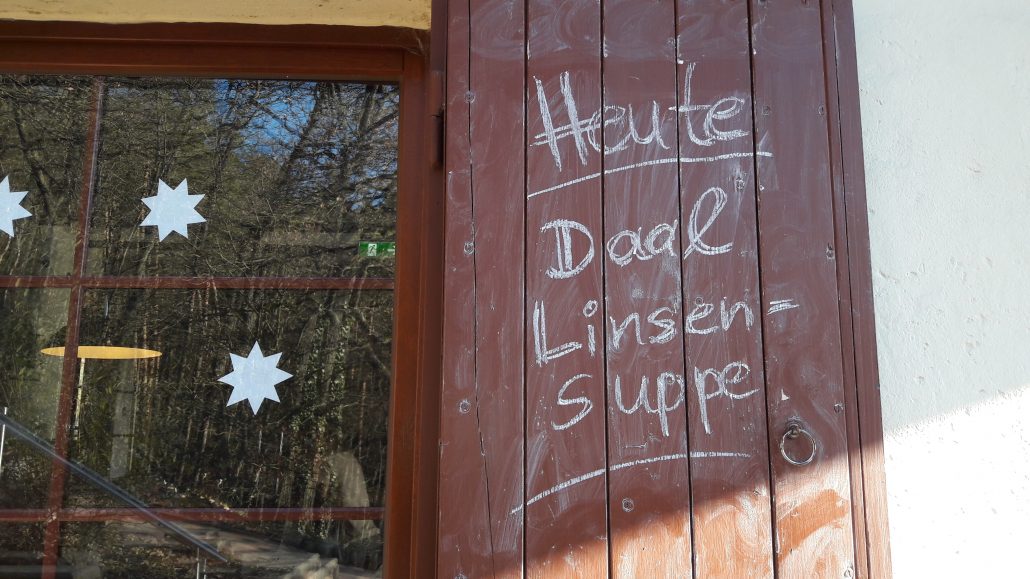 Heute
Daal
Linsen=
suppe